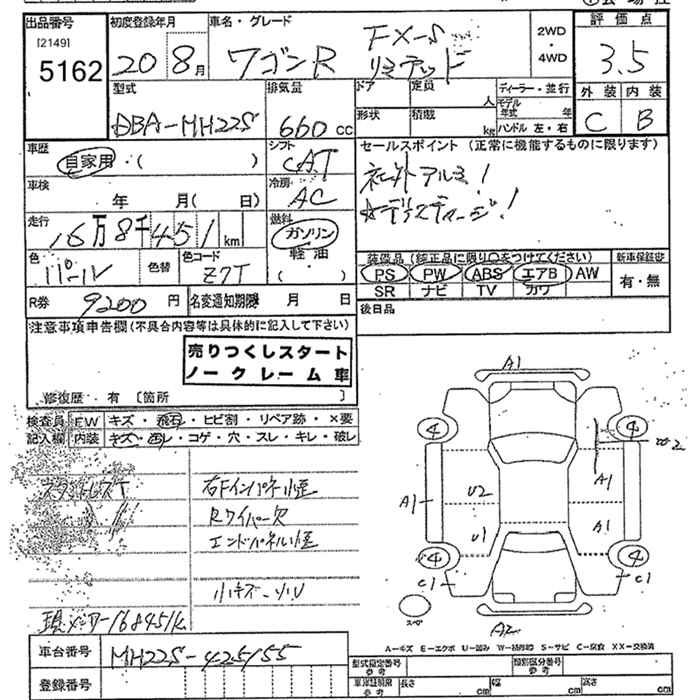 出品番号
[2149]
5162
初度登録年月
20 8月
車名・グレード
ワゴンR
FX-S
リミテッド
2WD
・
4WD
評価点
3.5
外装 内装
C B
型式
DBA-MH22S
排気量
660 cc
ドア
定員
人
形状
積載
kg
ディーラー・並行
モデル年式 年
ハンドル 左・右
車歴
自家用・( )
シフト
CAT
セールスポイント (正常に機能するものに限ります)
社外アルミ!
車検
年 月( 日)
冷房
AC
走行
16万8千451 km
燃料
ガソリン
軽油
( )
色
パール
色替
色コード
Z7T
装備品 (純正品に限り○をつけてください)
PS PW ABS エアB AW
SR ナビ TV カワ
新車保証書
有・無
R券
9200 円
名変通知期限 月 日
後日品
注意事項申告欄(不具合内容等は具体的に記入して下さい)
売りつくしスタート
ノークレーム車
修復歴・有 [箇所 ]
検査員
記入欄
FW キズ・飛石・ヒビ割・リペア跡・×要
内装 キズ・汚レ・コゲ・穴・スレ・キレ・破レ
スタットレスT
右Fインパネ煙
Rワイパー欠
エンドパネル煙
小キズ・小U
現メーター168451K
A1
4 4
W2
A1
A1
U2
A1
U1
4 4
C1 C1
スペ
A2
A-キズ E-エクボ U-凹み W-補修跡 S-サビ C-腐食 XX-交換済
車台番号
MH22S-425155
登録番号
型式指定番号
参考
類別区分番号
参考
車検証期限
参考
長さ cm
幅 cm
高さ cm